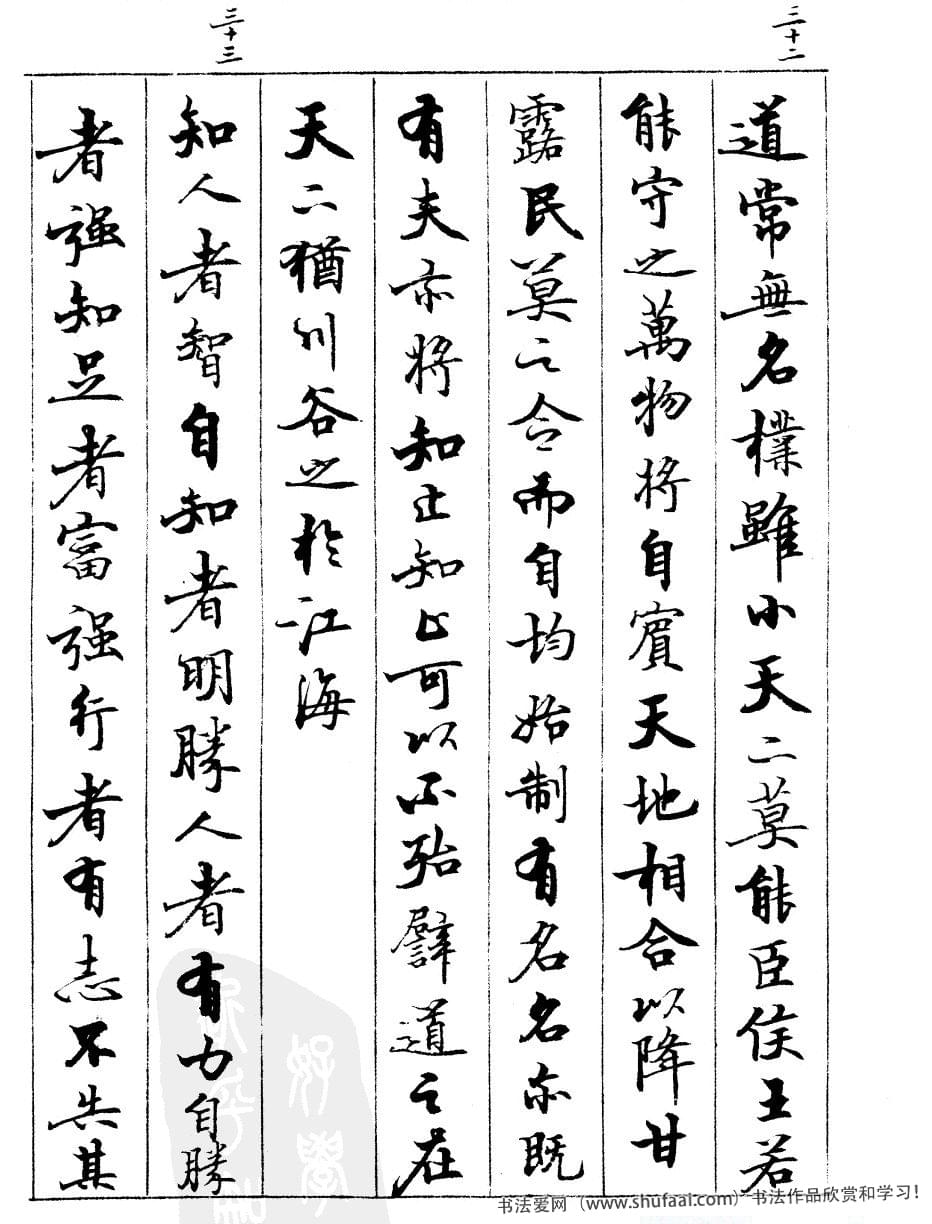 三十二
道常無名樸雖小天二莫能臣侯王若
能守之萬物将自賓天地相合以降甘
露民莫之令而自均始制有名名亦既
有夫亦将知止知止可以不殆譬道之在
天二猶川谷之於江海
三十三
知人者智自知者明勝人者有力自勝
者强知足者富强行者有志不失其
书法爱网（www.shufaai.com）书法作品欣赏和学习！